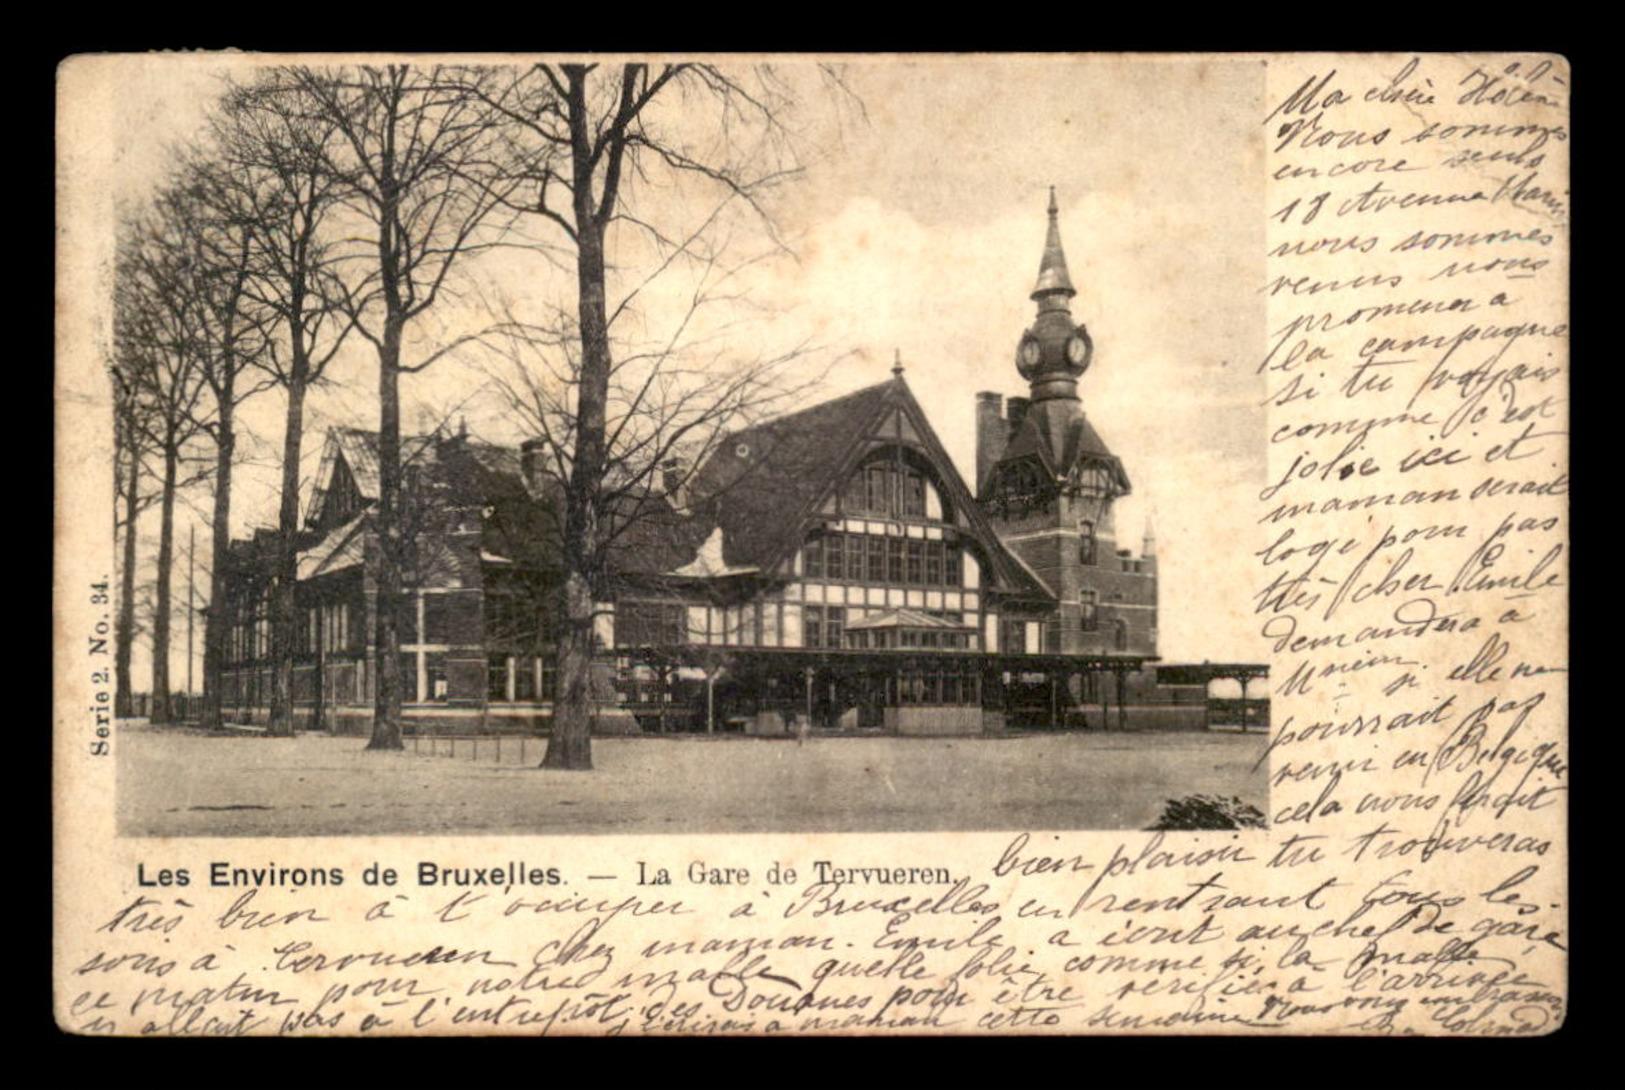 Ma chère Hélène
Nous sommes
encore seuls
18 Avenue Marie
nous sommes
venus nous
promener à
la campagne
si tu voyais
comme c'est
jolie ici et
maman serait
logé pour pas
très cher. Emile
demandera à
si elle ne
pourrait pas
venir en Belgique
cela nous ferait
bien plaisir tu trouveras
Serie 2. No. 34.
Les Environs de Bruxelles. — La Gare de Tervueren.
très bien à t'occuper à Bruxelles en rentrant tous les
soirs à Tervueren chez maman. Emile a écrit au chef de gare
ce matin pour notre malle quelle folie comme si la malle
n allait pas à l'entrepôt des Douanes pour être vérifiée à l'arrivée
j'écrirais à maman cette semaine Nous vous embrassons